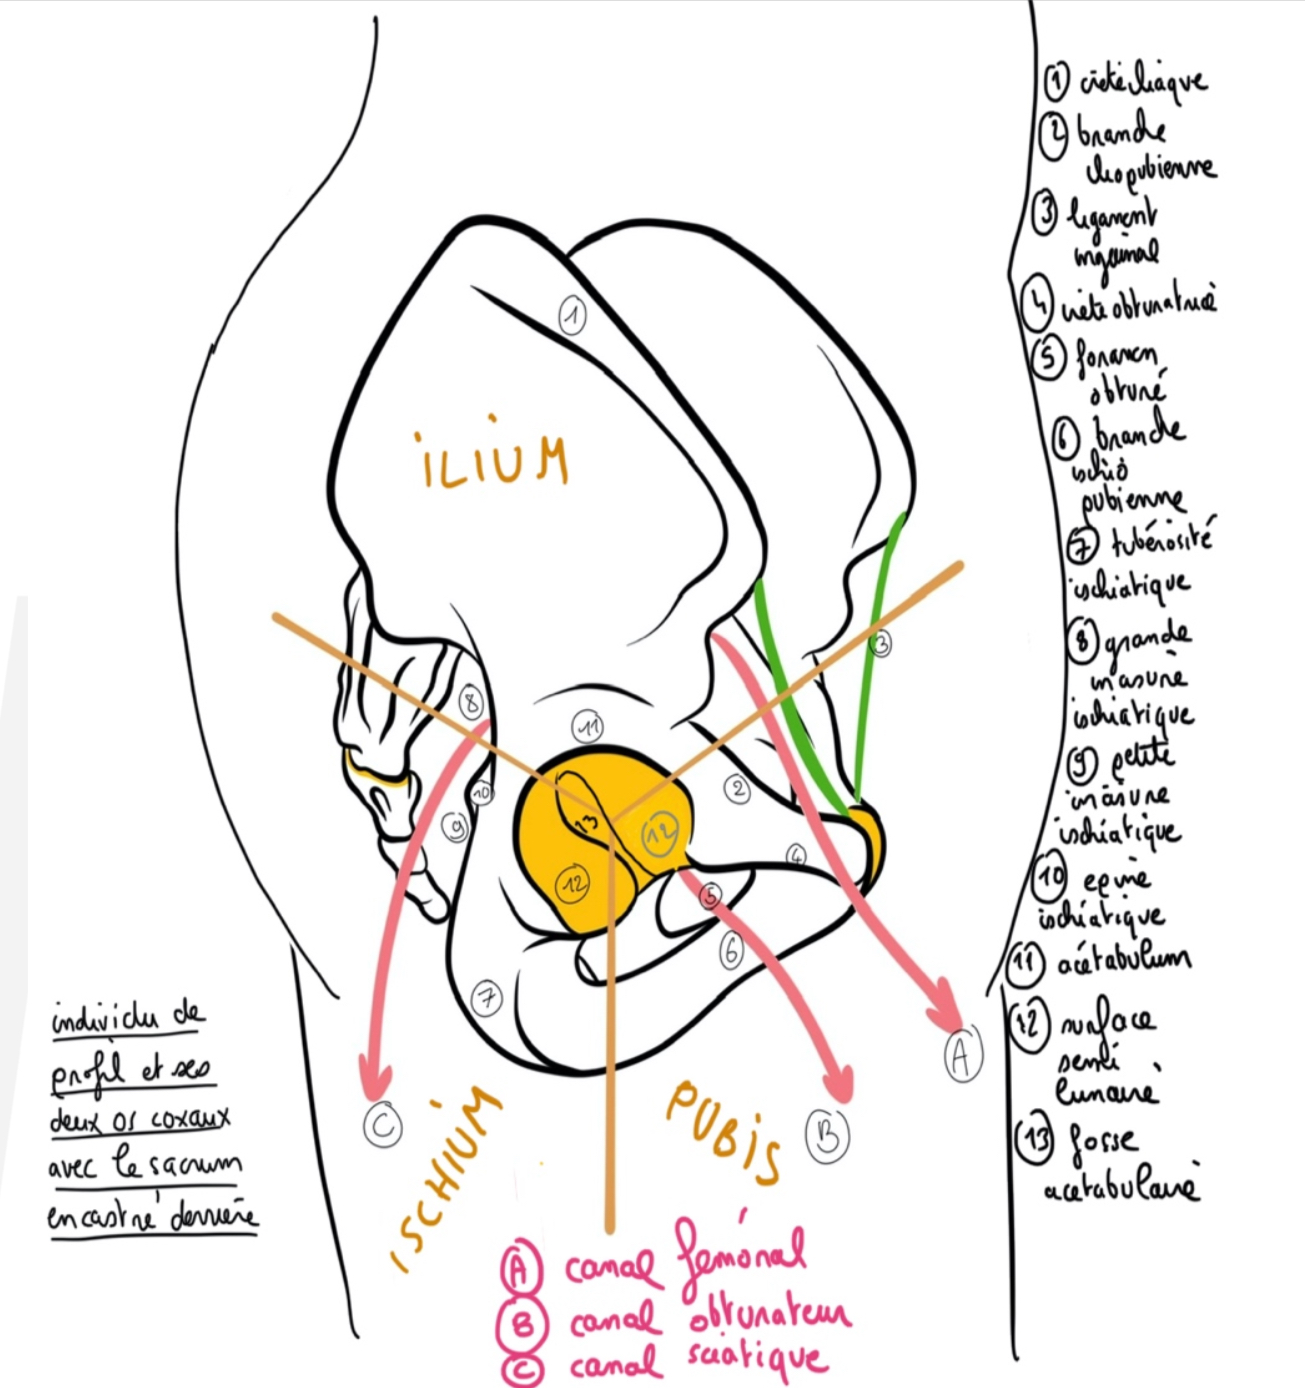 1 crête iliaque
2 branche
iliopubienne
3 ligament
inguinal
4 crête obturatrice
5 foramen
obturé
6 branche
ischio
pubienne
7 tubérosité
ischiatique
8 grande
incisure
ischiatique
9 petite
incisure
ischiatique
10 epine
ischiatique
11 acétabulum
12 surface
semi
lunaire
13 fosse
acetabulaire
1
ILIUM
3
8
11
2
10
9
13
12
4
12
5
6
7
A
C
B
ISCHIUM
PUBIS
individu de
profil et ses
deux os coxaux
avec le sacrum
encastré derrière
A canal fémoral
B canal obturateur
C canal sciatique